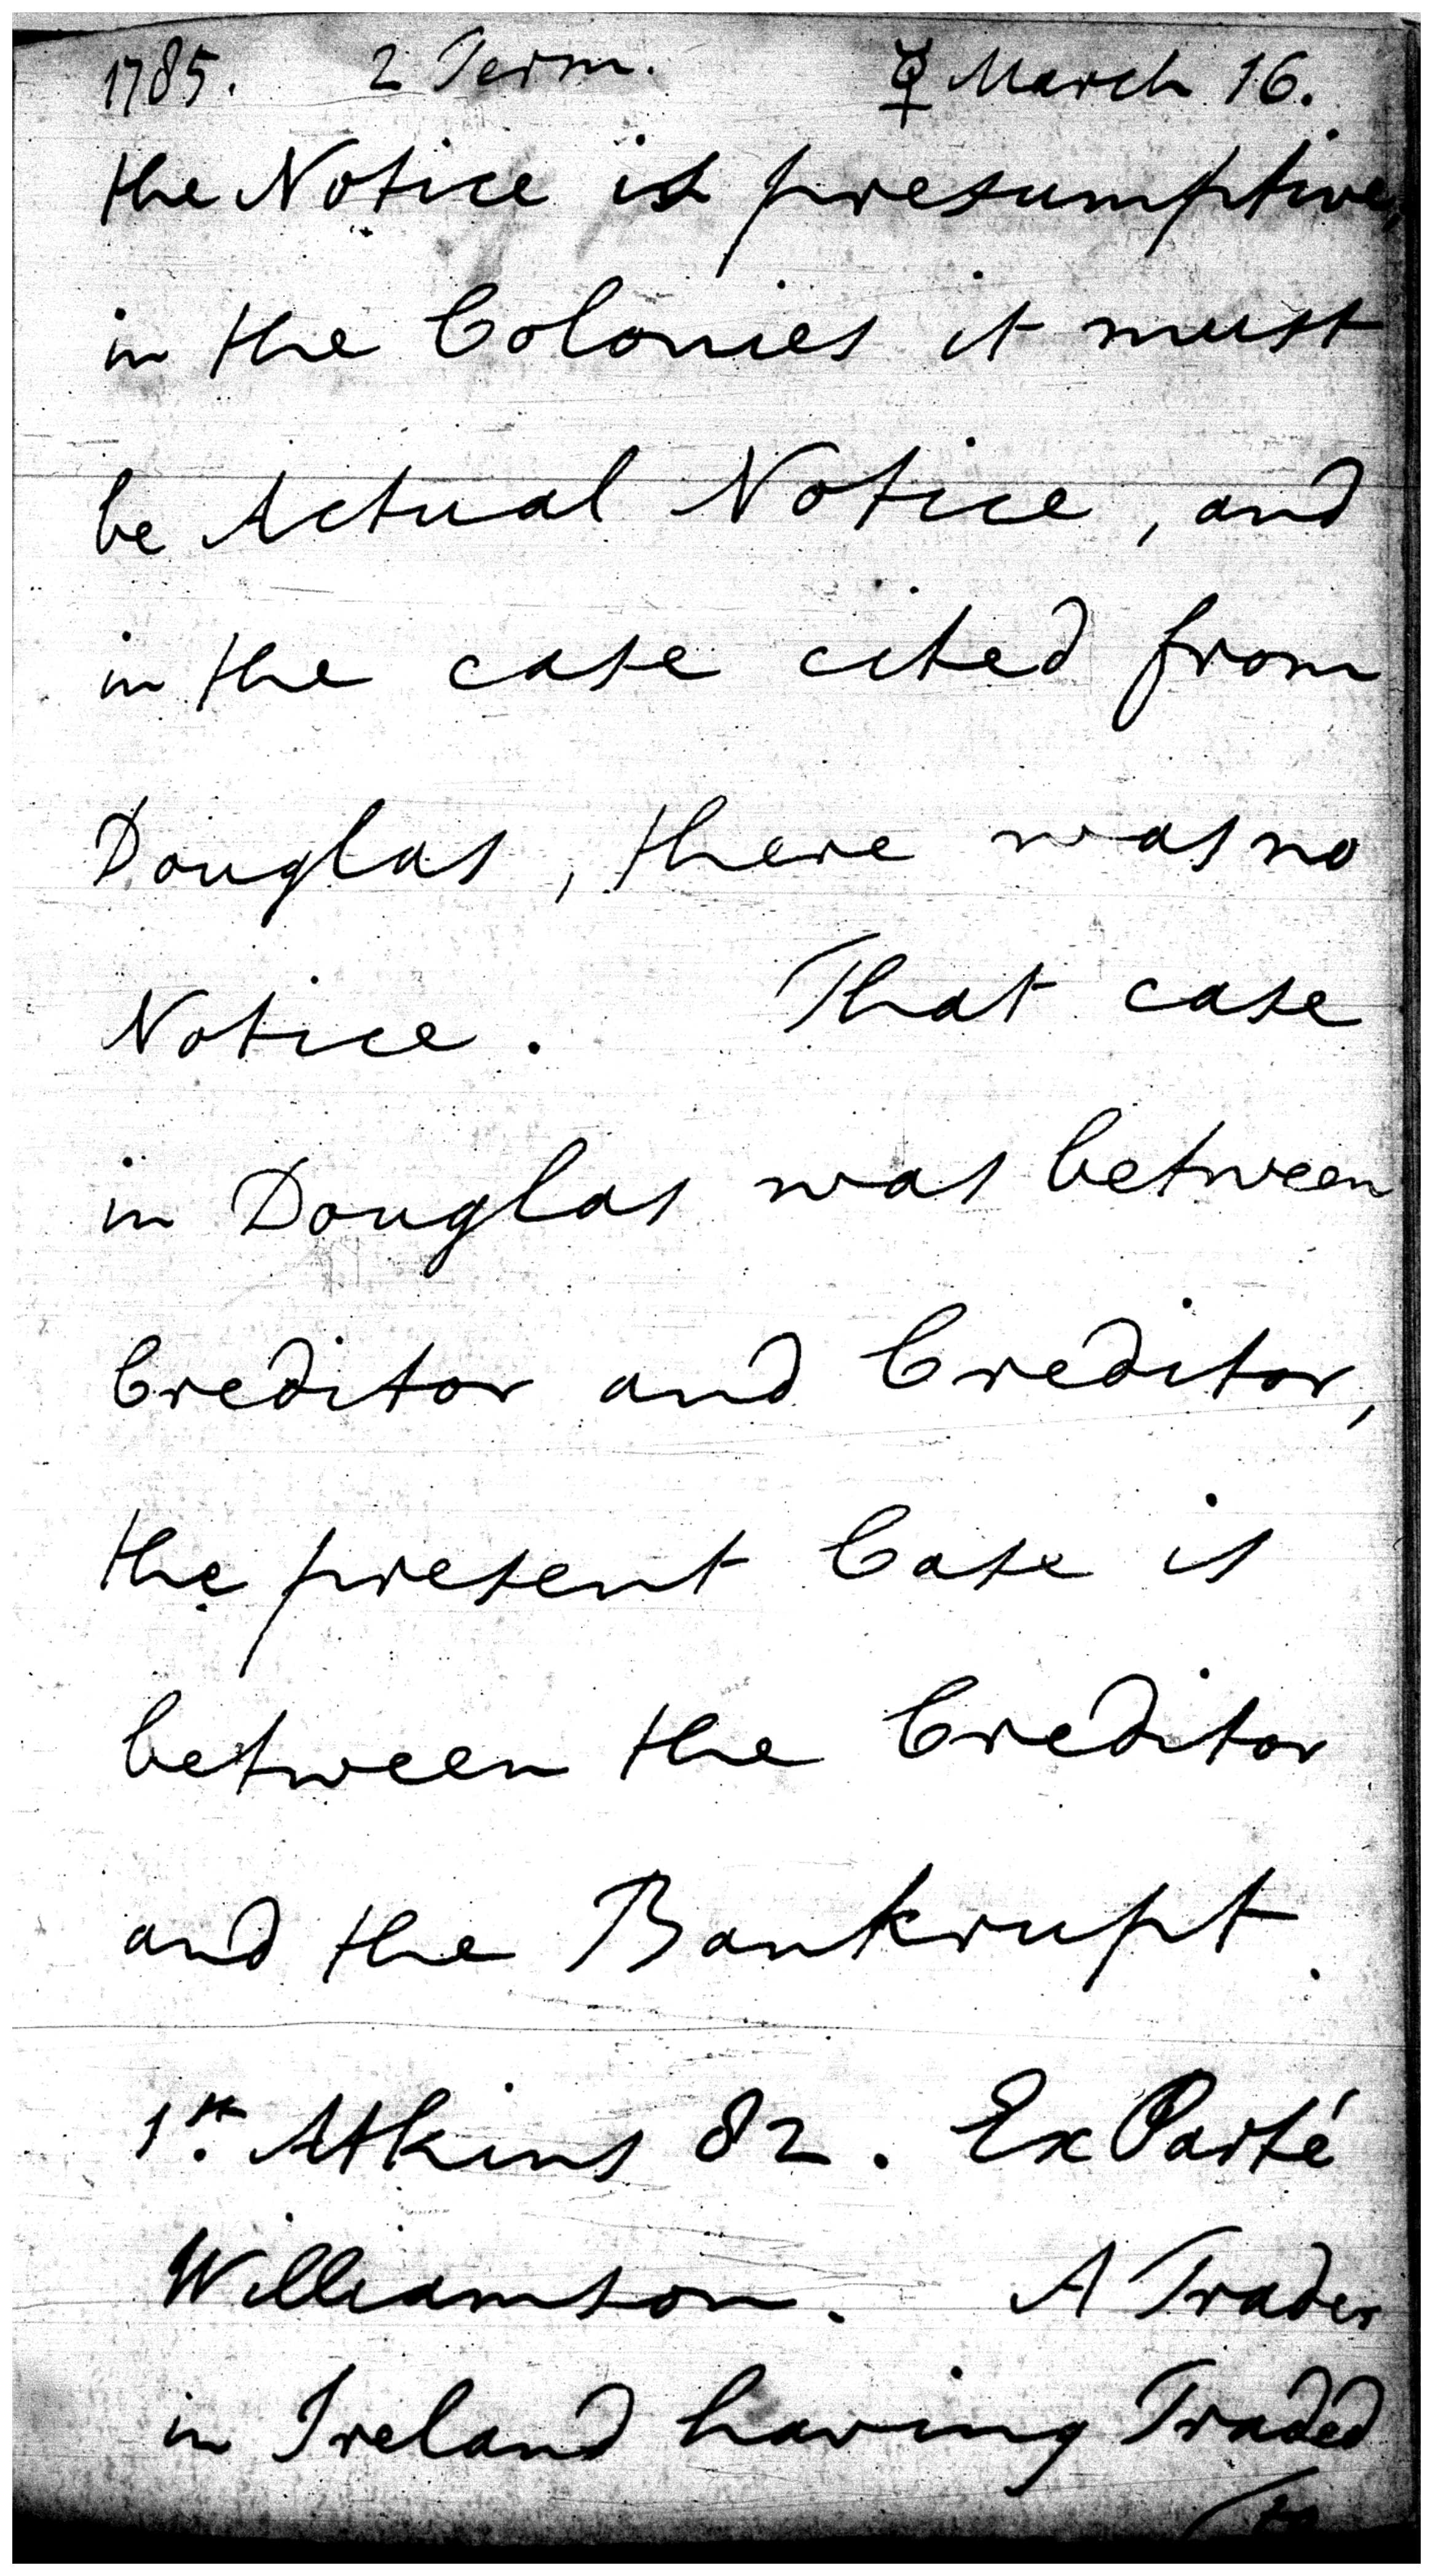 1785. 2 Term. ☿ March 16.
the Notice is presumptive,
in the Colonies it must
be Actual Notice, and
in the case cited from
Douglas, there was no
Notice. That case
in Douglas was between
Creditor and Creditor,
the present Case is
between the Creditor
and the Bankrupt.
1st. Atkins 82. Ex Parté
Williamson. A Trader
in Ireland having Traded
to